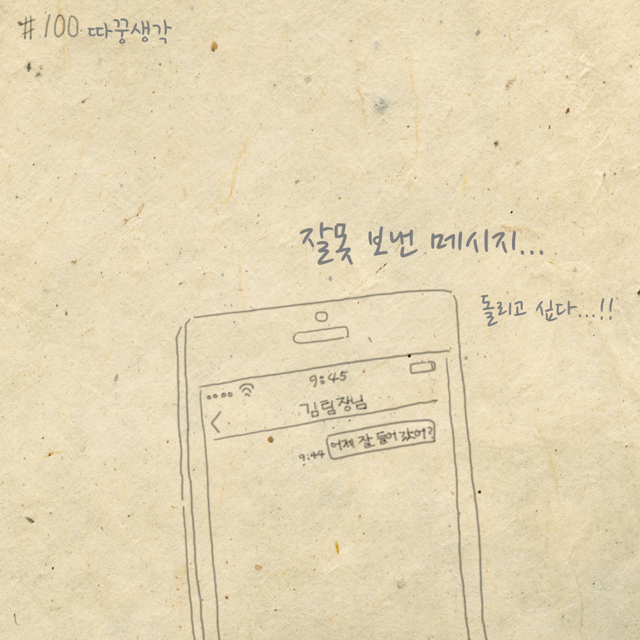 #100 따꿍생각
잘못 보낸 메시지...
돌리고 싶다...!!
9:45
김팀장님
어제 잘 들어갔어?
9:44